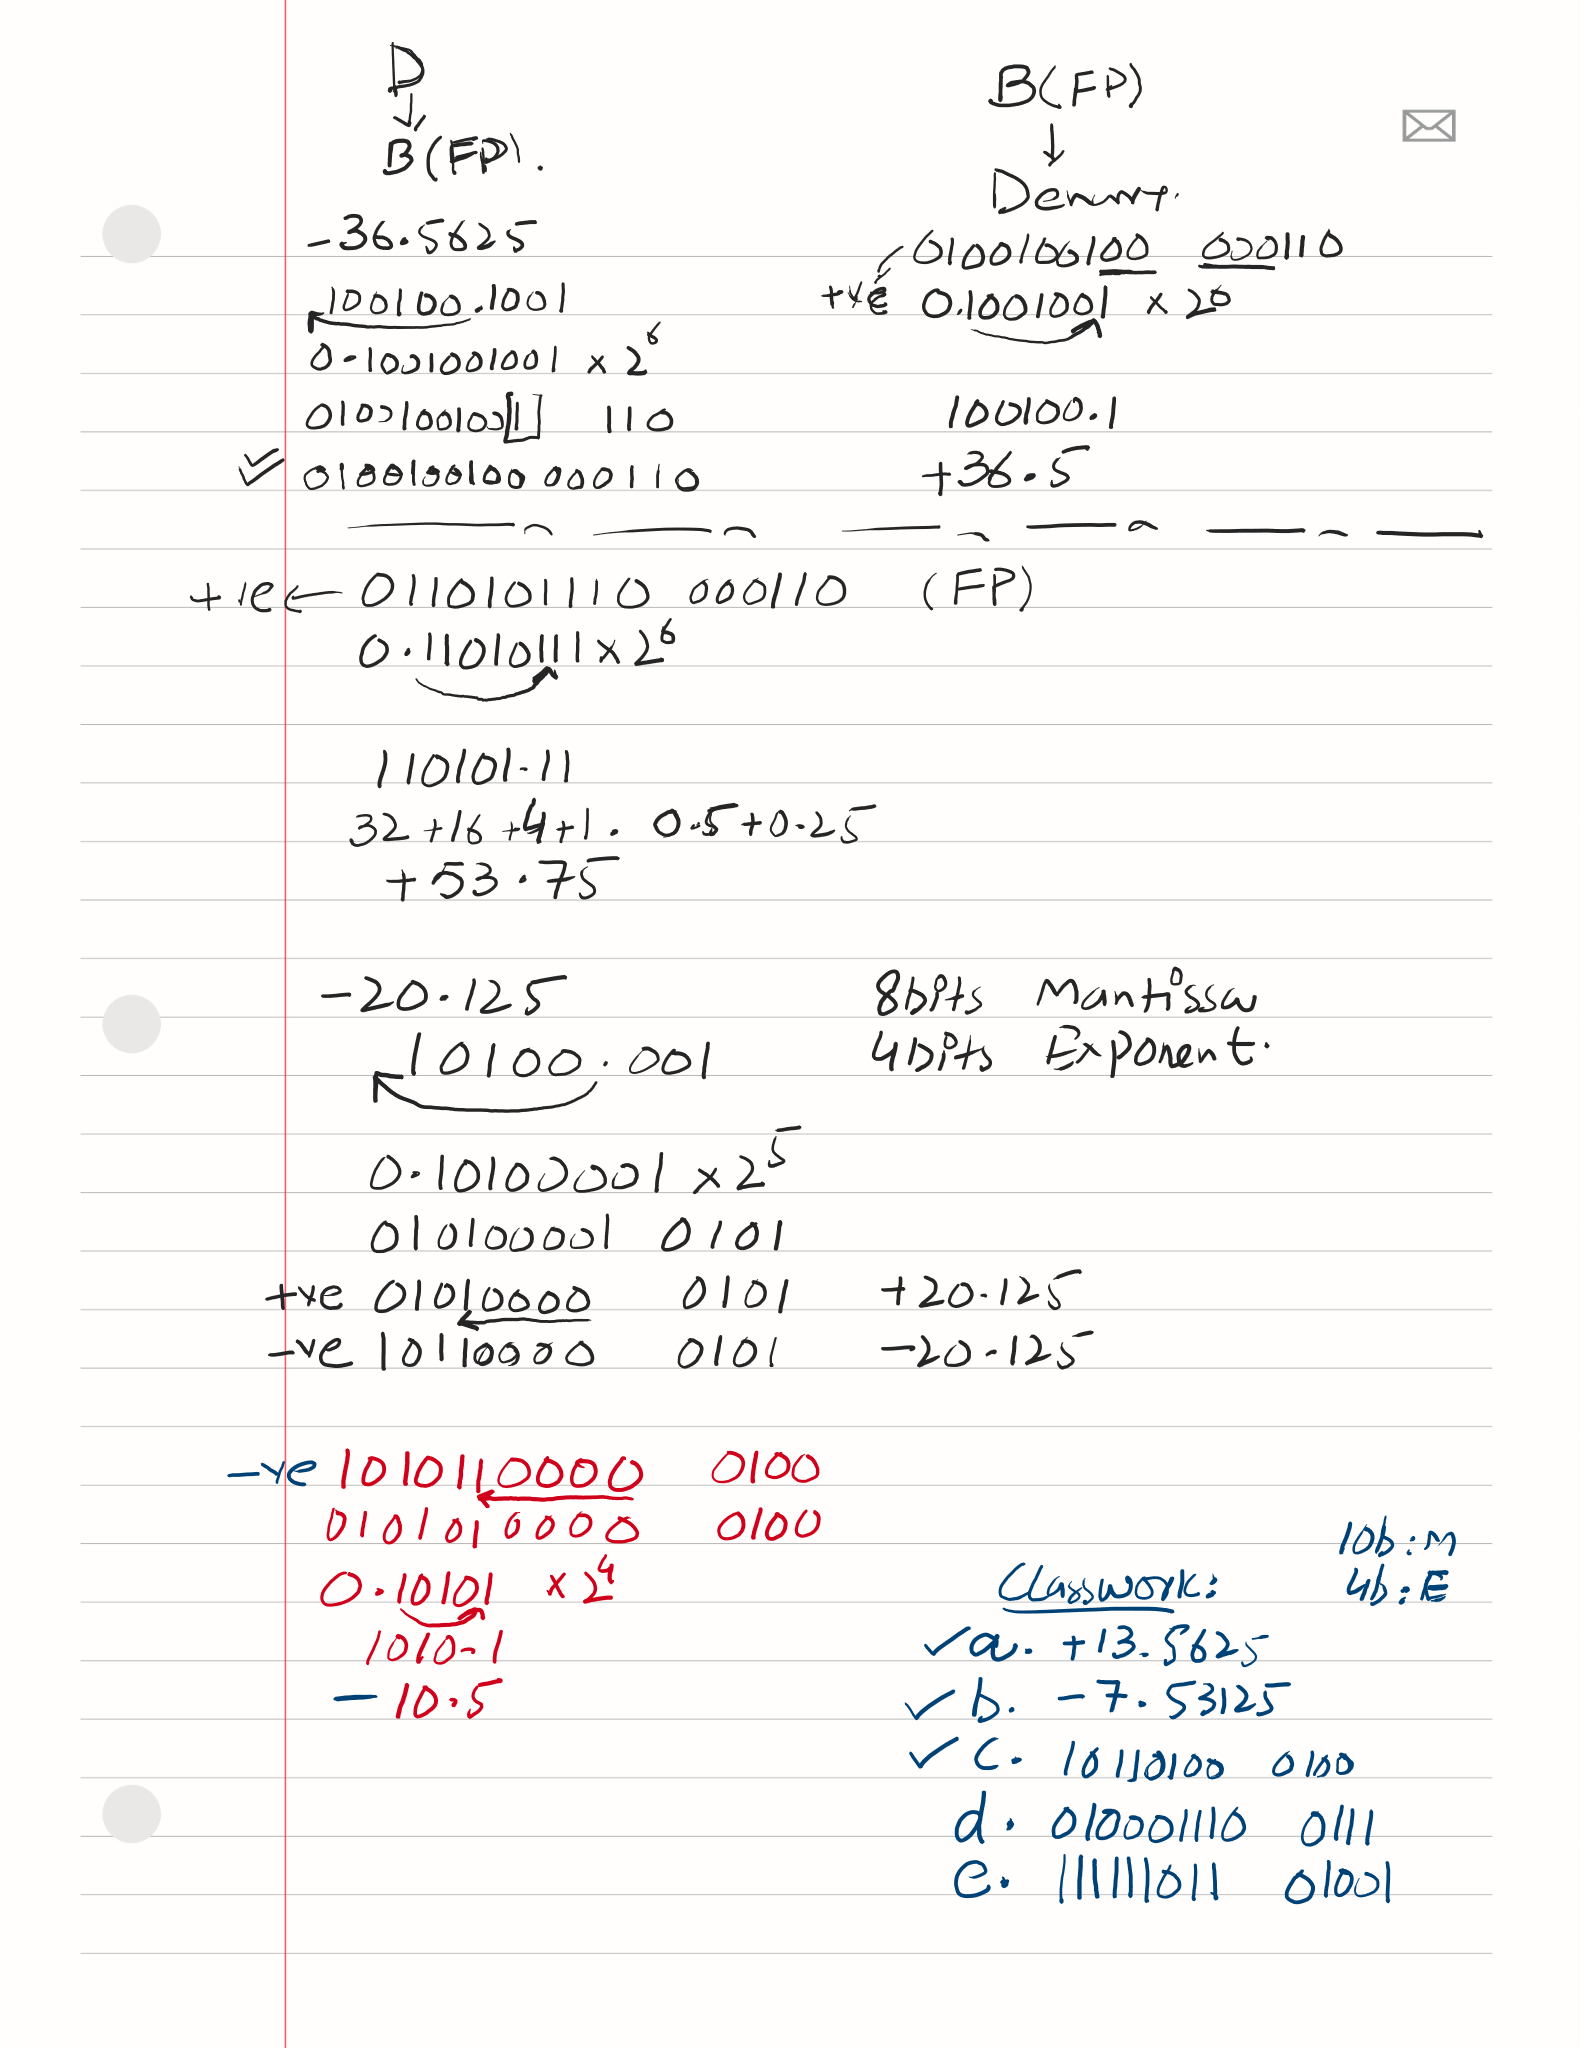 D
↓
B(FP).
-36.5625
100100.1001
0.1001001001 x 2^6
01001001001 110
0100100100 000110
B(FP)
↓
Denary.
0100100100 000110
+ve 0.1001001 x 2^6
100100.1
+36.5
+ve ← 0110101110 000110 (FP)
0.11010111 x 2^6
110101.11
32+16+4+1. 0.5+0.25
+53.75
-20.125 8bits Mantissa
10100.001 4bits Exponent.
0.10100001 x 2^5
010100001 0101
+ve 01010000 0101 +20.125
-ve 10110000 0101 -20.125
-ve 1010110000 0100
0101010000 0100
0.10101 x 2^4
1010.1
-10.5
10b:M
Classwork: 4b:E
✓ a. +13.5625
✓ b. -7.53125
✓ c. 10110100 0100
d. 010001110 0111
e. 111111011 01001